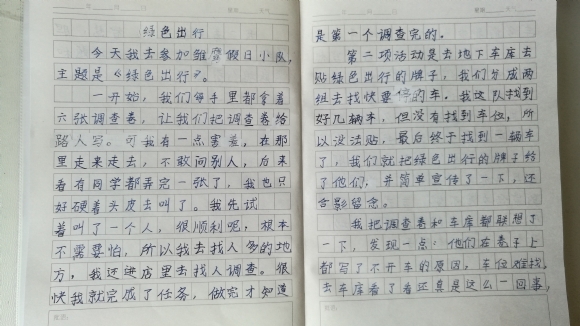 绿色出行
今天我去参加雏鹰假日小队,
主题是《绿色出行》。
一开始,我们每手里都拿着
六张调查卷,让我们把调查卷给
路人写。可我有一点害羞,在那
里走来走去,不敢问别人,后来
看有同学都弄完一张了,我也只
好硬着头皮去叫了。我先试
着叫了一个人,很顺利呢,根本
不需要怕,所以我去找人多的地
方,我还进店里去找人调查。很
快我就完成了任务,做完才知道
是第一个调查完的。
第二项活动是去地下车库去
贴绿色出行的牌子,我们分成两
组去找快要停的车。我这队找到
好几辆车,但没有找到车位,所
以没法贴,最后终于找到一辆车
了,我们就把绿色出行的牌子给
了他们,并简单宣传了一下,还
合影留念。
我把调查卷和车库都联想了
一下,发现一点:他们在卷子上
都写了不开车的原因,车位难找,
去车库看了看还真是这么一回事,